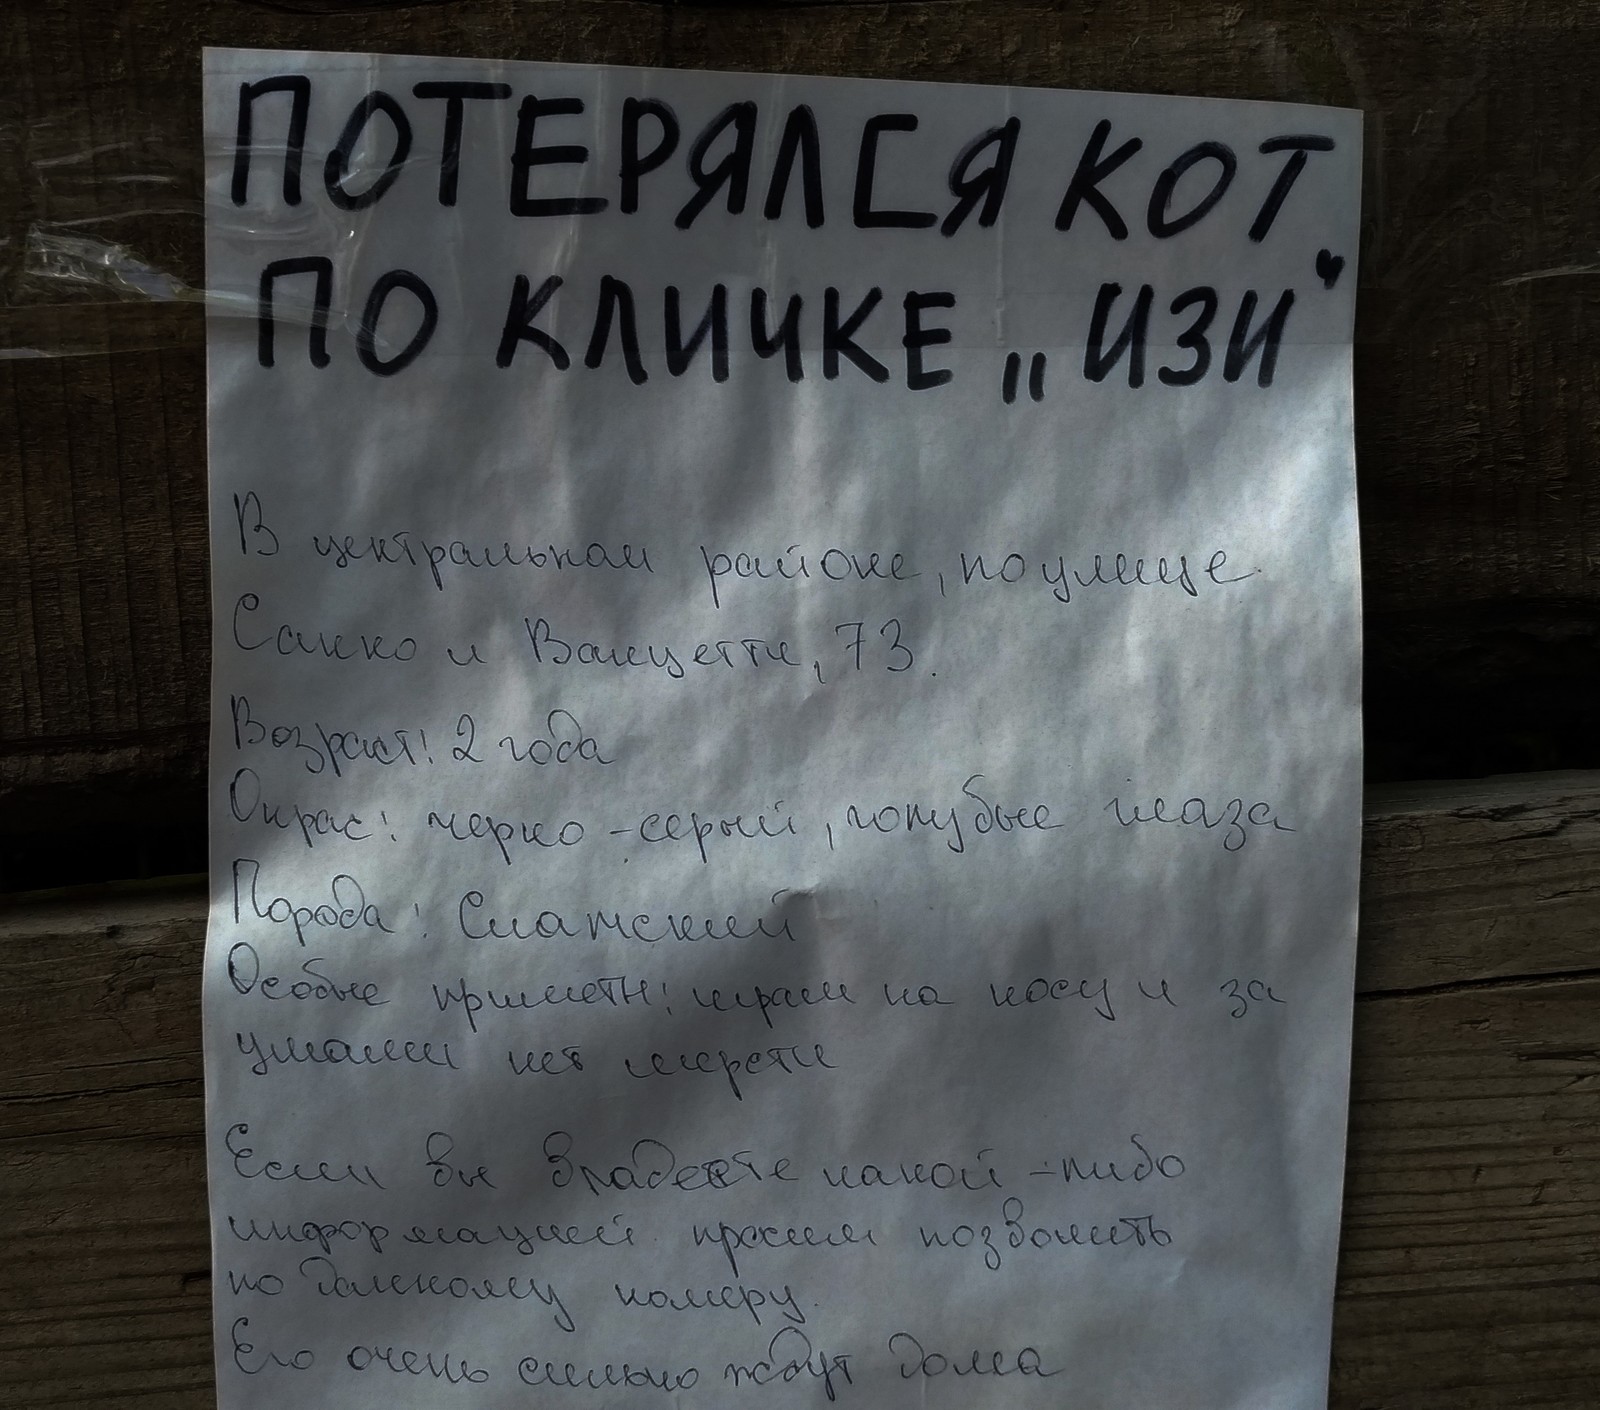 ПОТЕРЯЛСЯ КОТ
ПО КЛИЧКЕ „ИЗИ“
В центральном районе, по улице
Сакко и Ванцетти, 73.
Возраст: 2 года
Окрас: черно-серый, голубые глаза
Порода: Сиамский
Особые приметы: шрам на носу и за
ушами нет шерсти
Если вы владеете какой-либо
информацией просим позвонить
по данному номеру.
Его очень сильно ждут дома